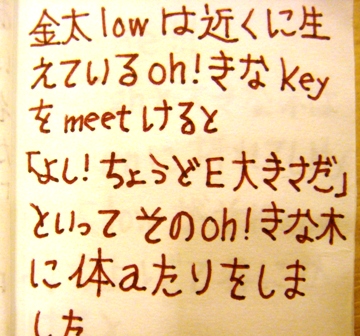 金太lowは近くに生
えているoh!きなkey
をmeetけると
「よし!ちょうどE大きさだ」
といってそのoh!きな木
に体aたりをしま
した